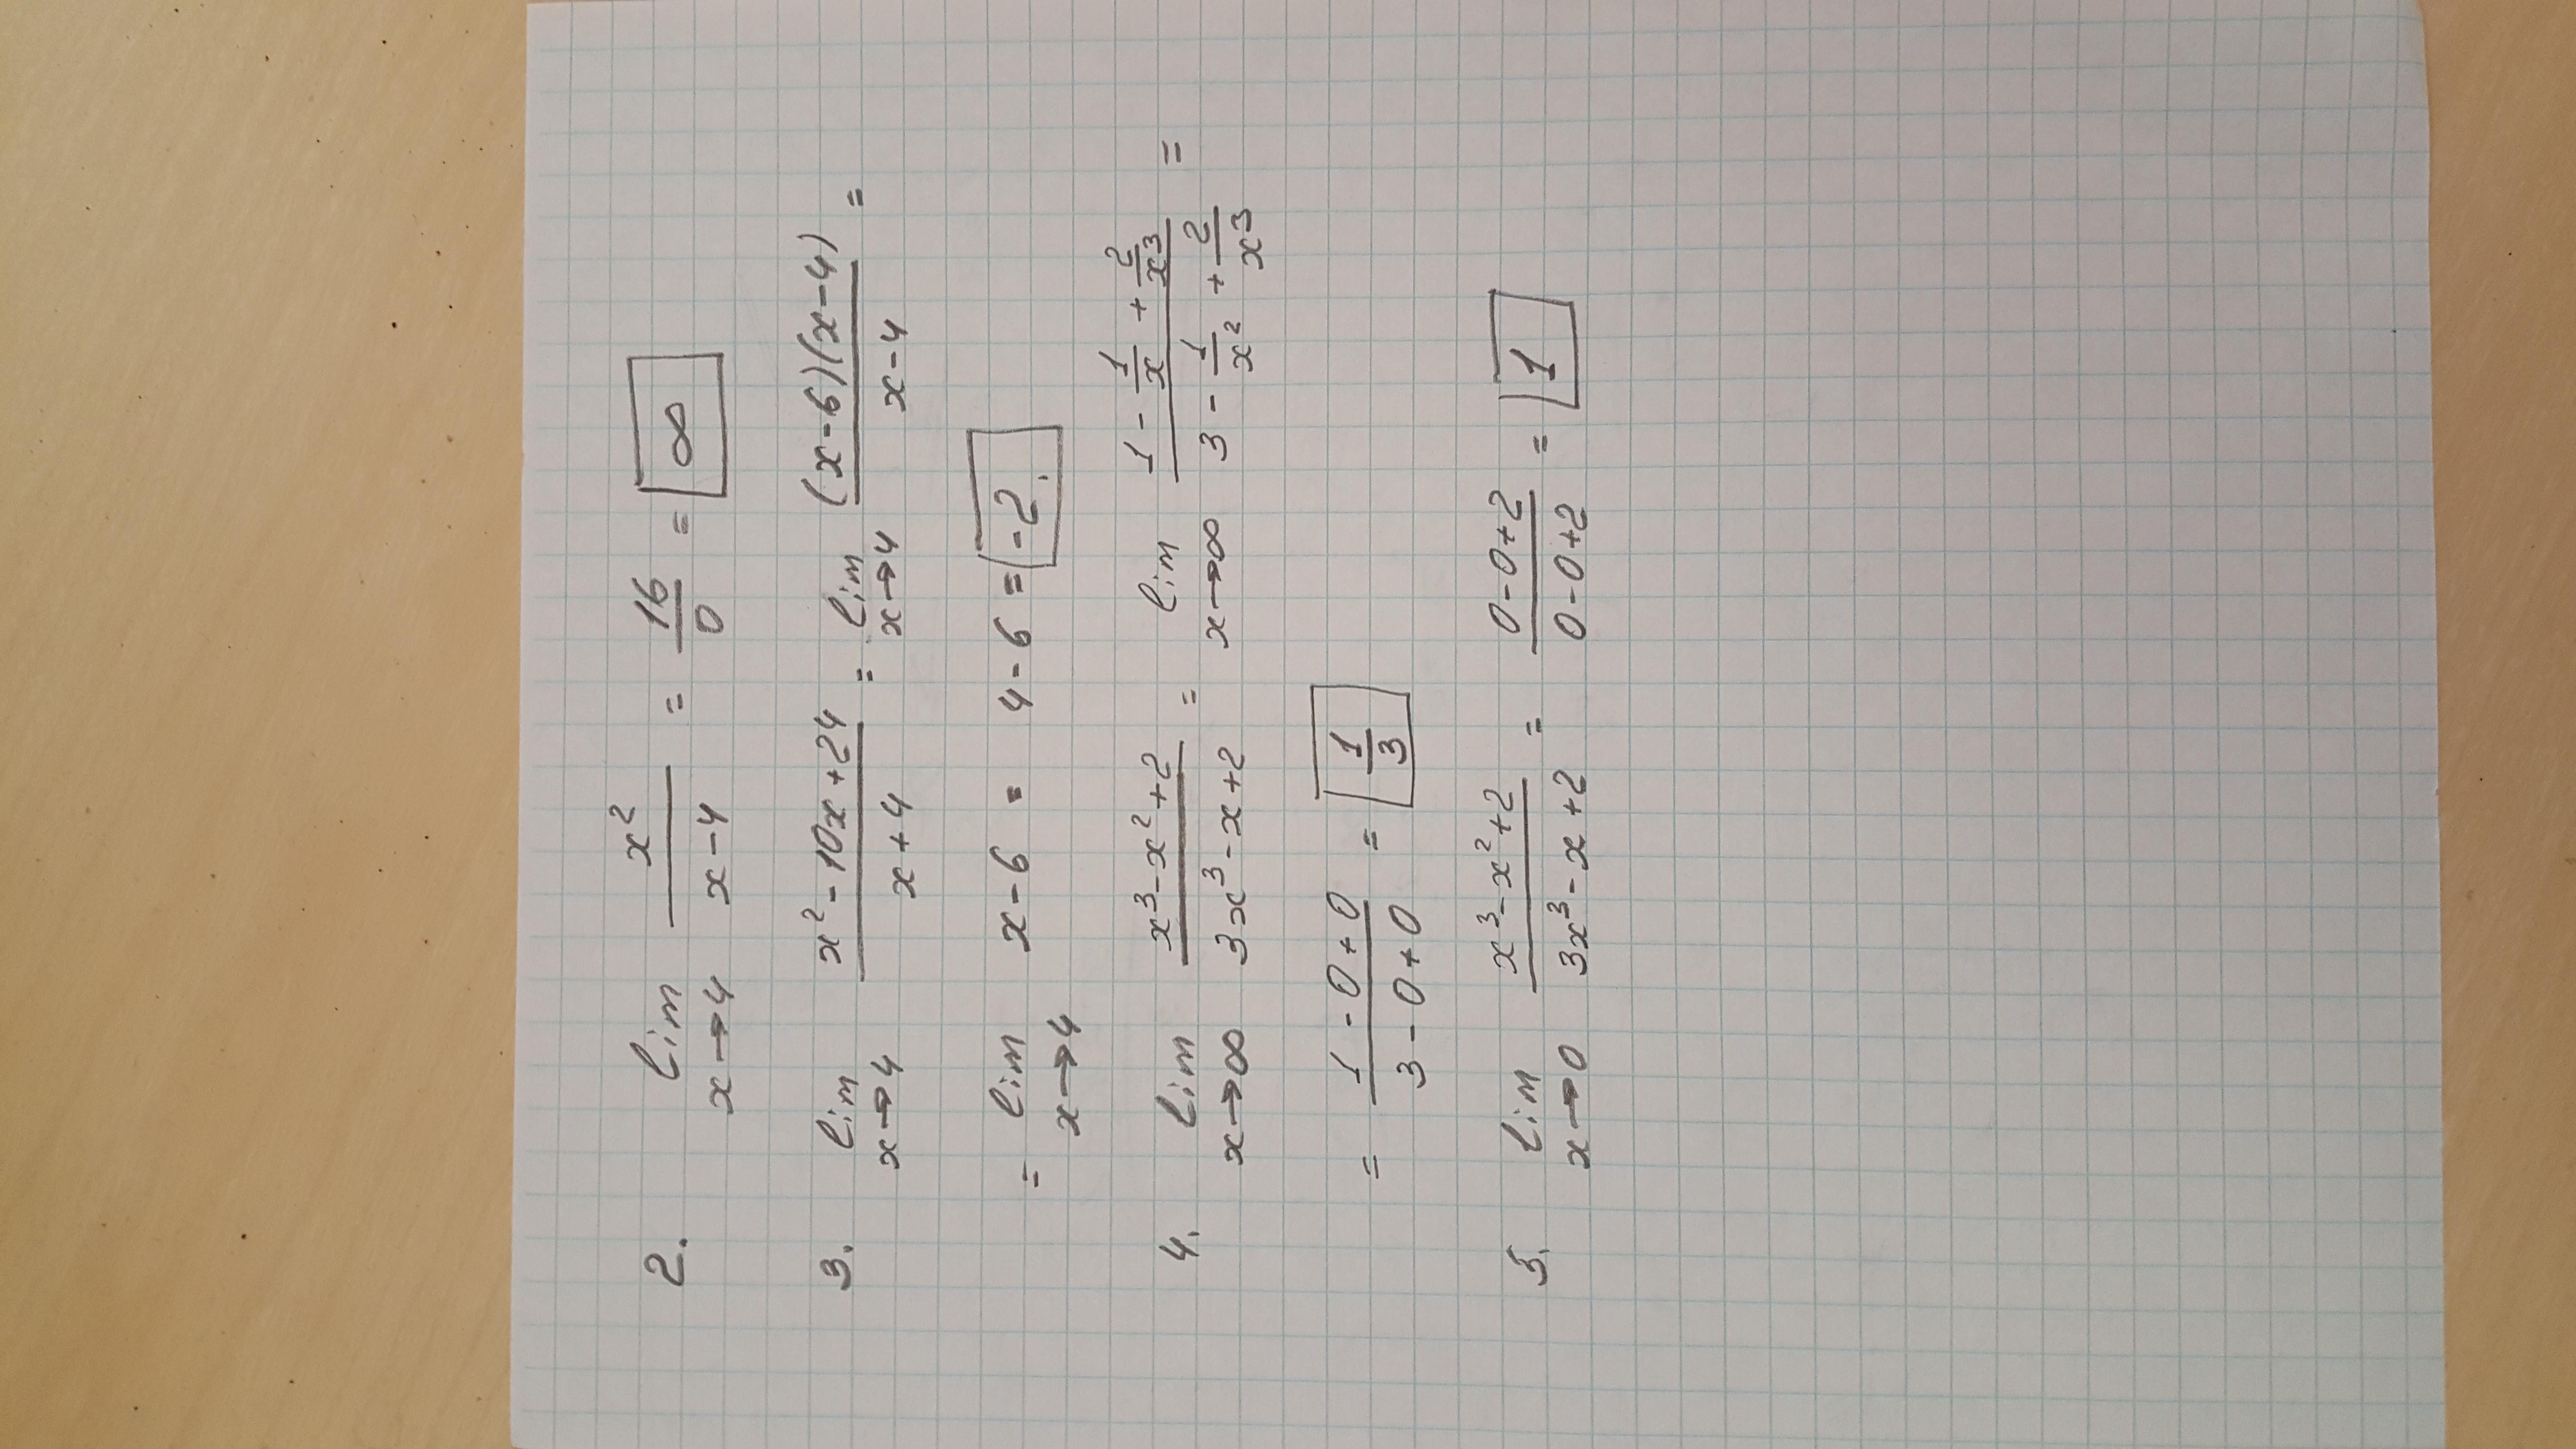 2. lim x→4 x²/(x-4) = 16/0 = ∞
3. lim x→4 (x²-10x+24)/(x+4) = lim x→4 (x-6)(x-4)/(x-4) =
= lim x→4 x-6 = 4-6 = -2.
4. lim x→∞ (x³-x²+2)/(3x³-x+2) = lim x→∞ (1 - 1/x + 2/x³)/(3 - 1/x² + 2/x³) =
= (1-0+0)/(3-0+0) = 1/3
5. lim x→0 (x³-x²+2)/(3x³-x+2) = (0-0+2)/(0-0+2) = 1